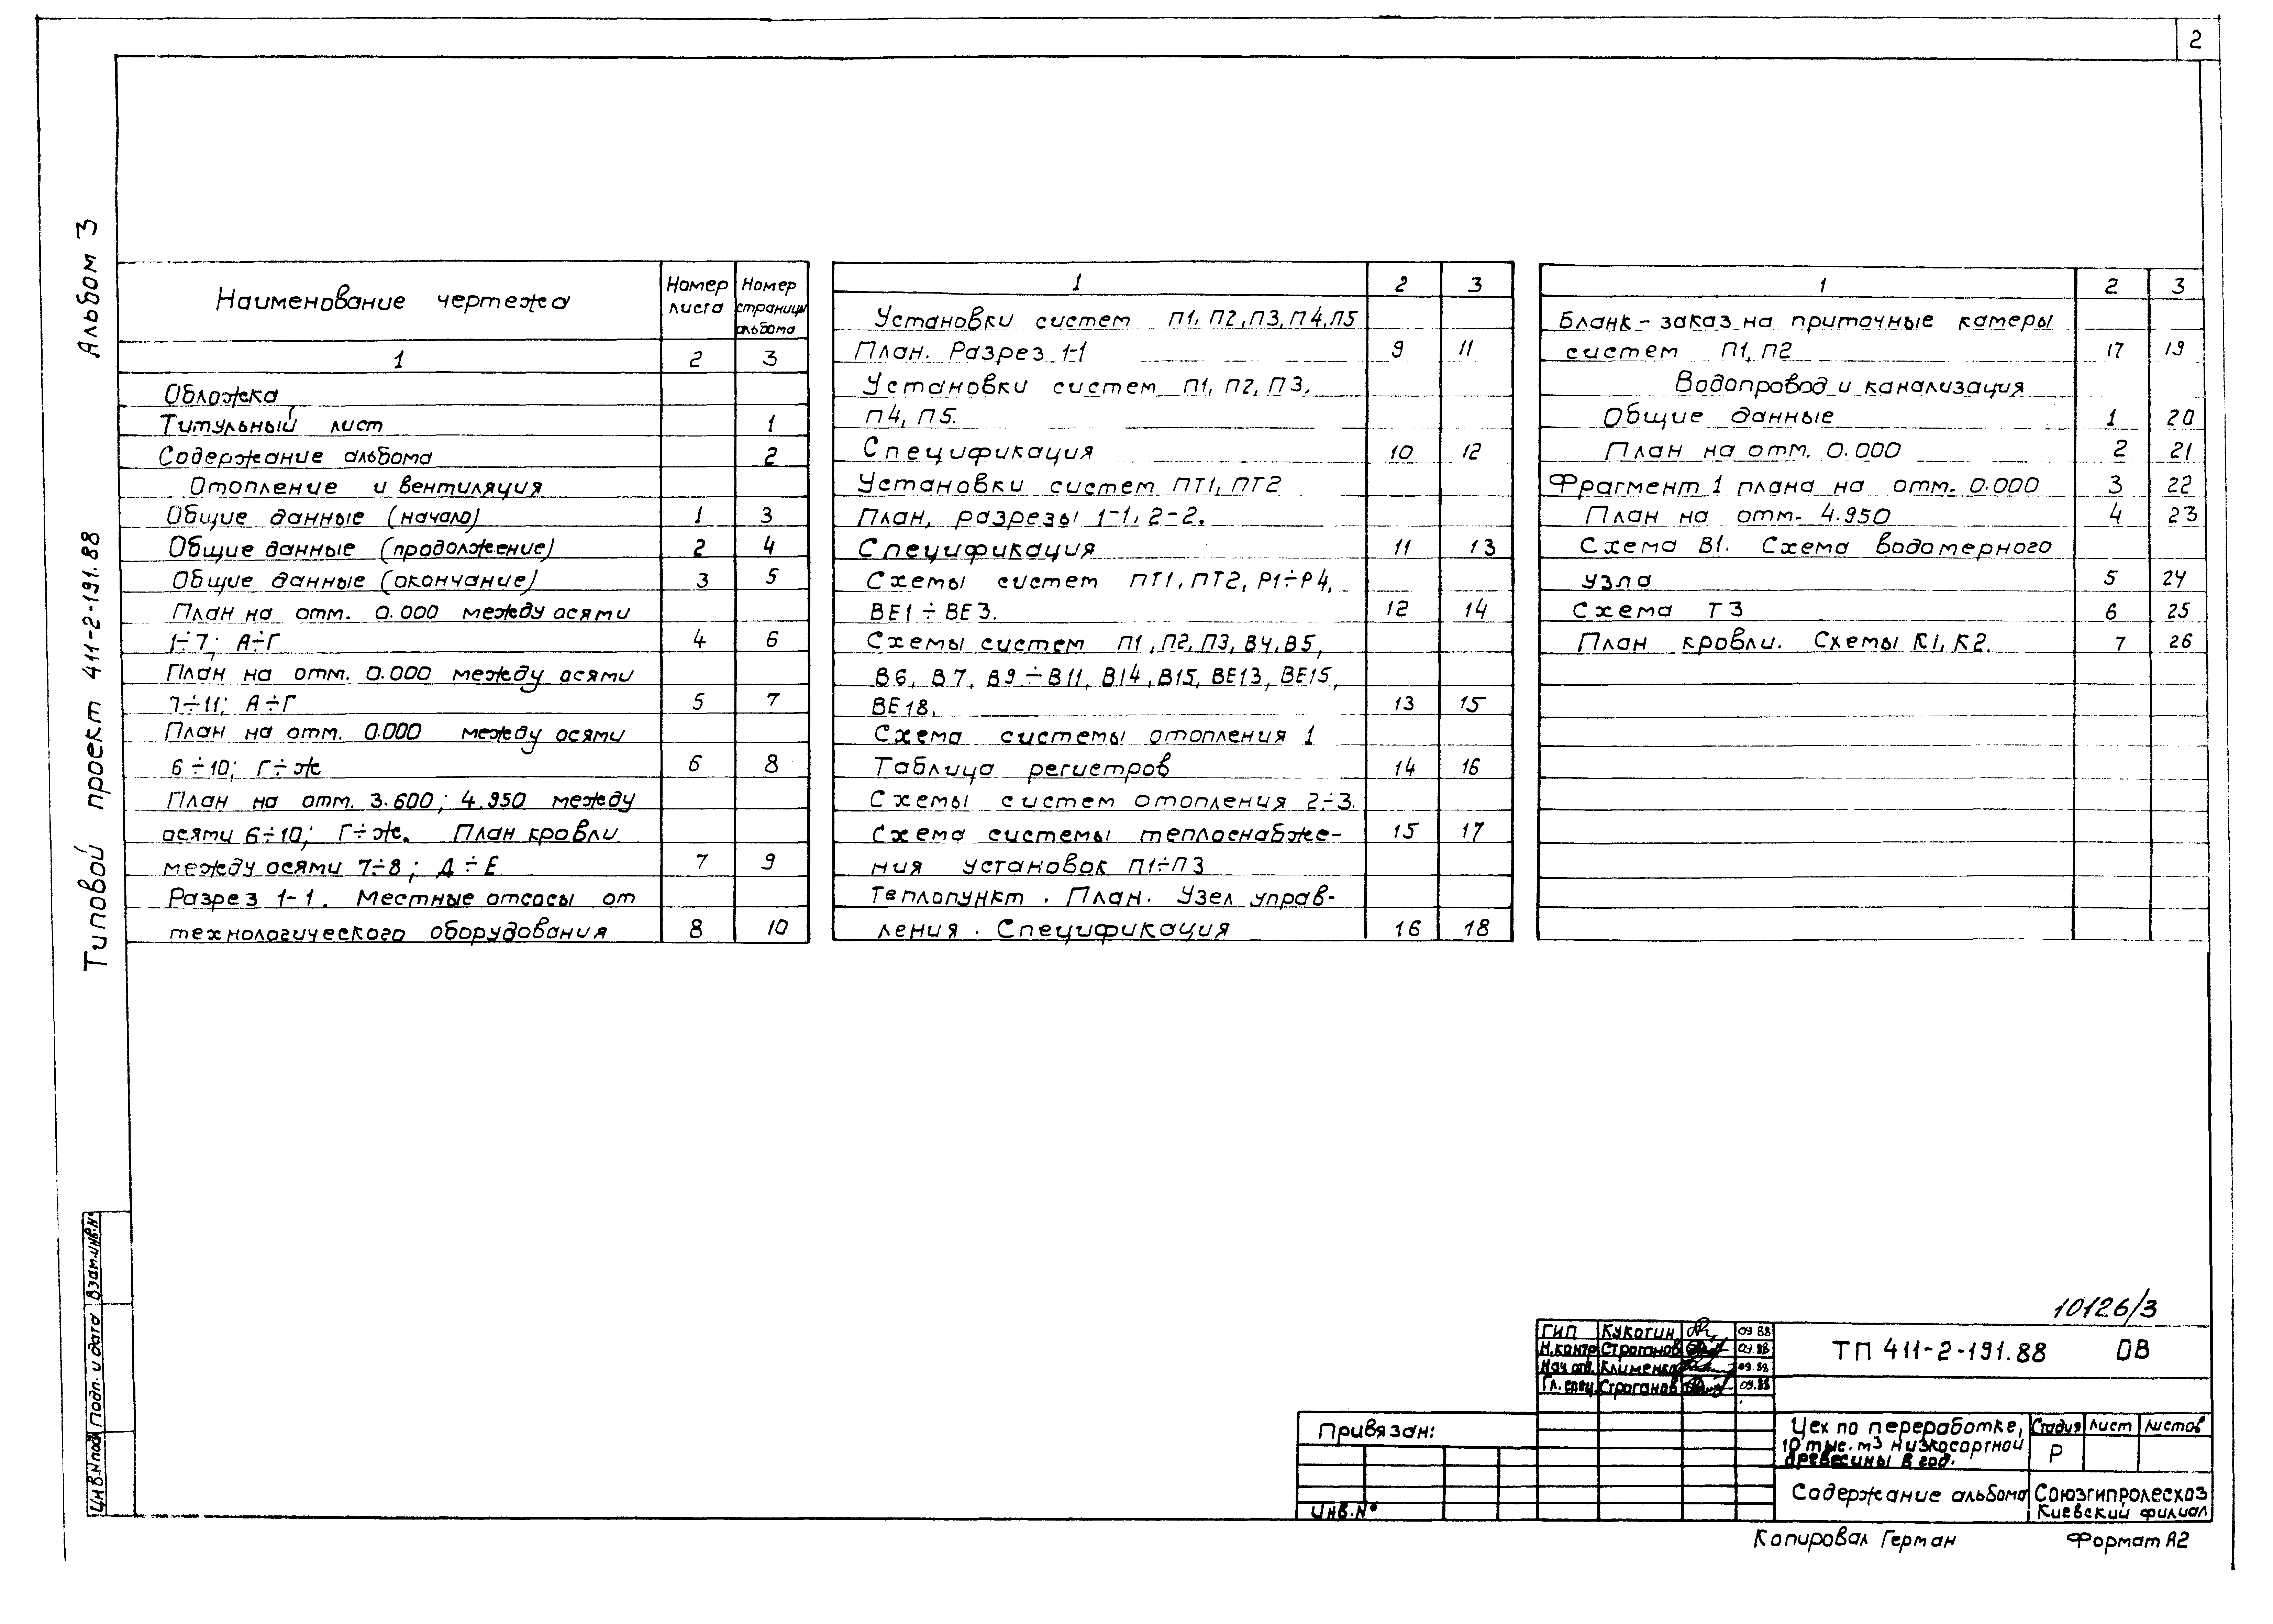 2
Альбом 3
Типовой проект 411-2-191.88
Наименование чертежа
Номер листа
Номер страницы альбома
1 2 3
Обложка
Титульный лист 1
Содержание альбома 2
Отопление и вентиляция
Общие данные (начало) 1 3
Общие данные (продолжение) 2 4
Общие данные (окончание) 3 5
План на отм. 0.000 между осями
1÷7; А÷Г 4 6
План на отм. 0.000 между осями
7÷11; А÷Г 5 7
План на отм. 0.000 между осями
6÷10; Г÷Ж 6 8
План на отм. 3.600; 4.950 между
осями 6÷10; Г÷Ж. План кровли
между осями 7÷8; Д÷Е 7 9
Разрез 1-1. Местные отсосы от
технологического оборудования 8 10
1 2 3
Установки систем П1, П2, П3, П4, П5
План. Разрез 1-1 9 11
Установки систем П1, П2, П3,
П4, П5.
Спецификация 10 12
Установки систем ПТ1, ПТ2
План, разрезы 1-1, 2-2.
Спецификация 11 13
Схемы систем ПТ1, ПТ2, Р1÷Р4,
ВЕ1÷ВЕ3. 12 14
Схемы систем П1, П2, П3, В4, В5,
В6, В7, В9÷В11, В14, В15, ВЕ13, ВЕ15,
ВЕ18. 13 15
Схема системы отопления 1
Таблица регистров 14 16
Схемы систем отопления 2÷3.
Схема системы теплоснабже- 15 17
ния установок П1÷П3
Теплопункт. План. Узел управ-
ления. Спецификация 16 18
1 2 3
Бланк-заказ на приточные камеры
систем П1, П2 17 19
Водопровод и канализация
Общие данные 1 20
План на отм. 0.000 2 21
Фрагмент 1 плана на отм. 0.000 3 22
План на отм. 4.950 4 23
Схема В1. Схема водомерного
узла 5 24
Схема Т3 6 25
План кровли. Схемы К1, К2. 7 26
Взам.инв.№
Подп. и дата
Инв.№подл
10126/3
ГИП Кукогин 09 88
Н.контр Строганов 09.88
Нач.отд. Клименко 09.88
Гл.спец. Строганов 09.88
ТП 411-2-191.88 ОВ
Привязан:
Инв.№
Цех по переработке,
10 тыс. м3 низкосортной
древесины в год.
Стадия Лист Листов
Р
Содержание альбома
Союзгипролесхоз
Киевский филиал
Копировал Герман
Формат А2